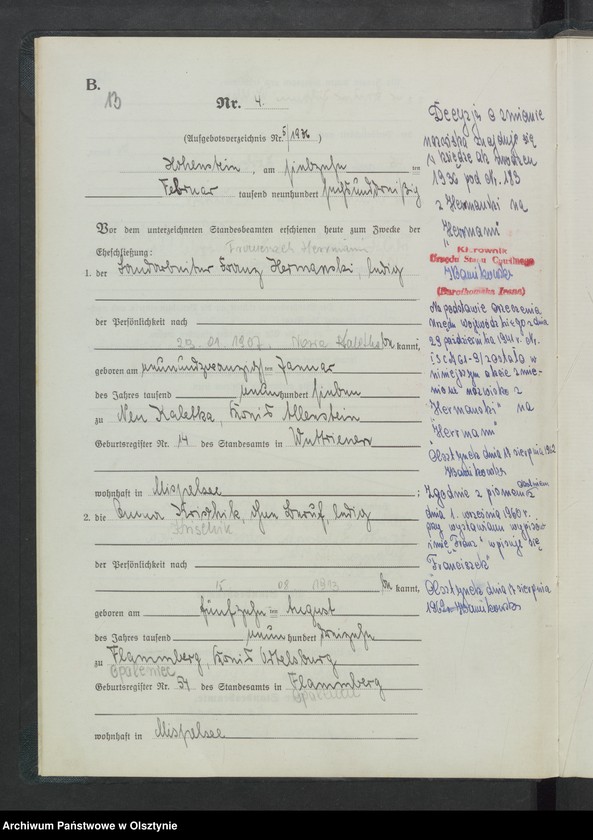 B.
13
Nr. 4.
(Aufgebotsverzeichnis Nr. 5/1936)
Hohenstein, am siebzehn ten
Februar tausend neunhundert sechsunddreißig
Vor dem unterzeichneten Standesbeamten erschienen heute zum Zwecke der
Eheschließung: Franciszek Herrmann
1. der Landarbeiter Franz Hermanski, ledig
der Persönlichkeit nach
29. 01. 1907. Nowa Kaletka be kannt,
geboren am neunundzwanzigsten Januar
des Jahres tausend neunhundert sieben
zu Neu Kaletka, Kreis Allenstein
Geburtsregister Nr. 14 des Standesamts in Wuttrienen
wohnhaft in Mispelsee ;
2. die Emma Krischik, ohne Beruf, ledig
Krischik
der Persönlichkeit nach
15 08 1913 be kannt,
geboren am fünfzehnten August
des Jahres tausend neunhundert dreizehn
zu Flammberg, Kreis Ortelsburg
Opaleniec
Geburtsregister Nr. 54 des Standesamts in Flammberg
Opaleniec
wohnhaft in Mispelsee
Decyzja o zmianie
nazwiska znajduje się
w księdze akt urodzeń
1936 pod Nr. 183
z Hermanski na
"Hermann"
Kierownik
Urzędu Stanu Cywilnego
Na podstawie orzeczenia
Urzędu Wojewódzkiego z dnia
29 października 1961 r. Nr.
została w
niniejszym akcie zmie-
niona nazwisko z
"Hermanski" na
"Herrmann"
Olsztynek dnia 17 sierpnia 1962
Zgodnie z pismem
dnia 1. września 1960 r.
przy wystawianiu wypisów
imię "Franz" wpisuje się
"Franciszek"
Olsztynek dnia 17 sierpnia
1962
Archiwum Państwowe w Olsztynie